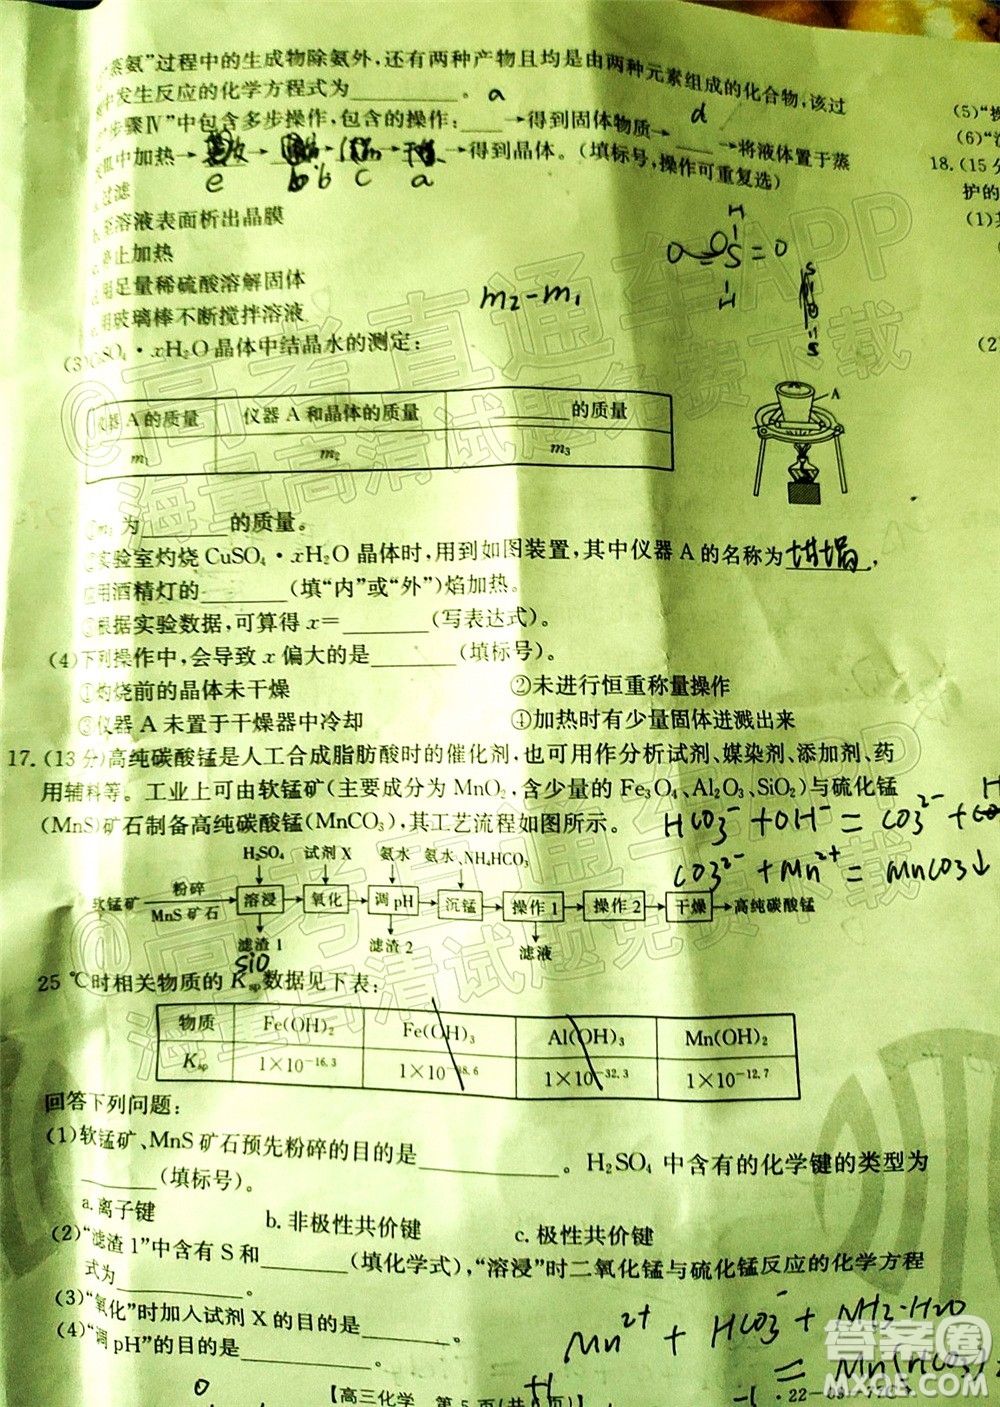 蒸氨”过程中的生成物除氨外,还有两种产物且均是由两种元素组成的化合物,该过
中发生反应的化学方程式为______。
步骤Ⅳ”中包含多步操作,包含的操作:____→得到固体物质→____→将液体置于蒸
中加热→____→____→____→____→得到晶体。(填标号,操作可重复选)
a
d
e b b c a
过滤
溶液表面析出晶膜
止加热
用足量稀硫酸溶解固体
用玻璃棒不断搅拌溶液
m₂-m₁
(3)CuSO₄·xH₂O晶体中结晶水的测定:
仪器A的质量 仪器A和晶体的质量 ______的质量
m₁ m₂ m₃
A
为______的质量。
②实验室灼烧CuSO₄·xH₂O晶体时,用到如图装置,其中仪器A的名称为坩埚,
应用酒精灯的______(填“内”或“外”)焰加热。
③根据实验数据,可算得x=______(写表达式)。
(4)下列操作中,会导致x偏大的是______(填标号)。
①灼烧前的晶体未干燥 ②未进行恒重称量操作
③仪器A未置于干燥器中冷却 ④加热时有少量固体迸溅出来
17.(13分)高纯碳酸锰是人工合成脂肪酸时的催化剂,也可用作分析试剂、媒染剂、添加剂、药
用辅料等。工业上可由软锰矿(主要成分为MnO₂,含少量的Fe₃O₄、Al₂O₃、SiO₂)与硫化锰
(MnS)矿石制备高纯碳酸锰(MnCO₃),其工艺流程如图所示。
HCO₃⁻+OH⁻=CO₃²⁻+
CO₃²⁻+Mn²⁺=MnCO₃↓
H₂SO₄ 试剂X 氨水 氨水、NH₄HCO₃
软锰矿 粉碎 MnS矿石 溶浸 氧化 调pH 沉锰 操作1 操作2 干燥 高纯碳酸锰
滤渣1 滤渣2 滤液
SiO
25 ℃时相关物质的Ksp数据见下表:
物质 Fe(OH)₂ Fe(OH)₃ Al(OH)₃ Mn(OH)₂
Ksp 1×10⁻¹⁶·³ 1×10⁻³⁸·⁶ 1×10⁻³²·³ 1×10⁻¹²·⁷
回答下列问题:
(1)软锰矿、MnS矿石预先粉碎的目的是______。H₂SO₄中含有的化学键的类型为
______(填标号)。
a.离子键 b.非极性共价键 c.极性共价键
(2)“滤渣1”中含有S和______(填化学式),“溶浸”时二氧化锰与硫化锰反应的化学方程
式为______。
(3)“氧化”时加入试剂X的目的是______。
(4)“调pH”的目的是______。
Mn²⁺+HCO₃⁻+NH₃·H₂O
=Mn(HCO₃)₂
【高三化学 第5页(共 页)】
(5)“
(6)“
18.(15分
护的
(1)
(2)
@高考直通车APP
海量高清试题免费下载
@高考直通车APP
海量高清试题免费下载
答案圈
MXQE.COM